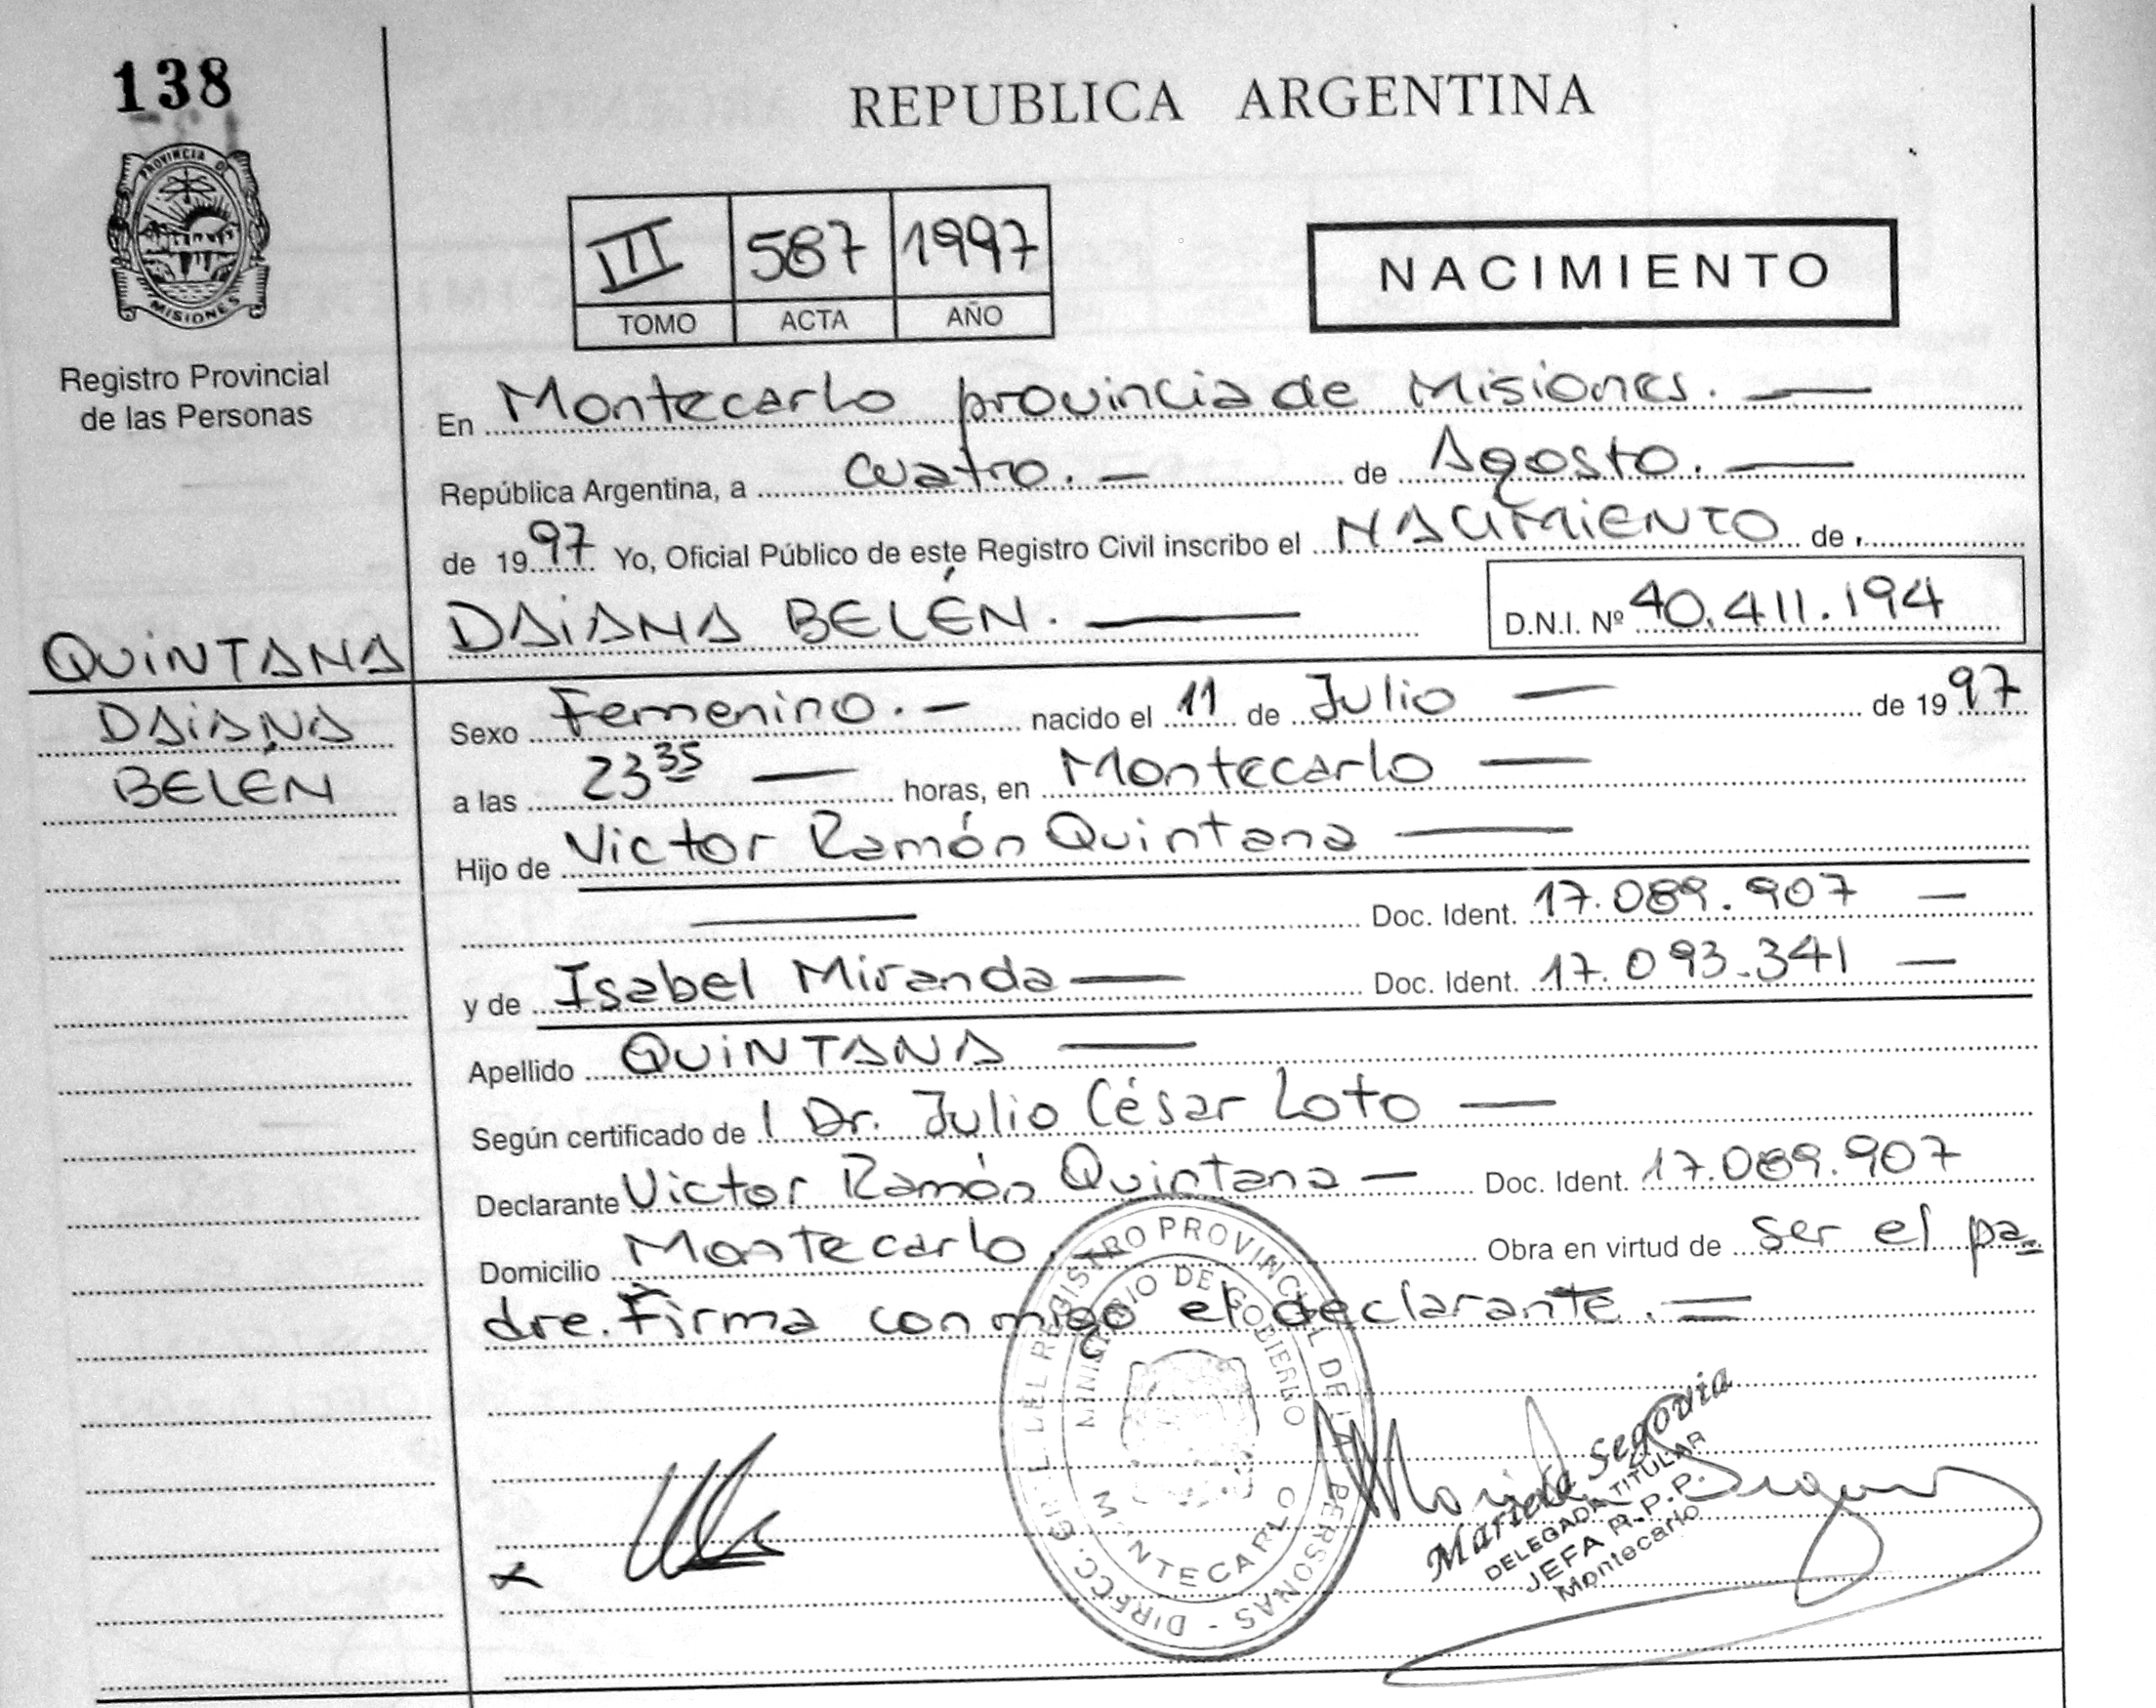 138
REPUBLICA ARGENTINA
PROVINCIA DE
MISIONES
Registro Provincial
de las Personas
III 587 1997
TOMO ACTA AÑO
NACIMIENTO
En Montecarlo provincia de Misiones. —
República Argentina, a cuatro. — de Agosto. —
de 1997 Yo, Oficial Público de este Registro Civil inscribo el NACIMIENTO de
DAIANA BELÉN. — D.N.I. Nº 40.411.194
QUINTANA
DAIANA
BELÉN
Sexo Femenino. — nacido el 11 de Julio — de 1997
a las 23 35 — horas, en Montecarlo —
Hijo de Victor Ramón Quintana —
— Doc. Ident. 17.089.907 —
y de Isabel Miranda — Doc. Ident. 17.093.341 —
Apellido QUINTANA —
Según certificado de l Dr. Julio César Loto —
Declarante Victor Ramón Quintana — Doc. Ident. 17.089.907
Domicilio Montecarlo. — Obra en virtud de ser el pa=
dre. Firma conmigo el declarante. =
DIRECC. GRAL DEL REGISTRO PROVINCIAL DE LAS PERSONAS -
MINISTERIO DE GOBIERNO
MONTECARLO
Mariela Segovia
DELEGADA TITULAR
JEFA R.P.P.
Montecarlo